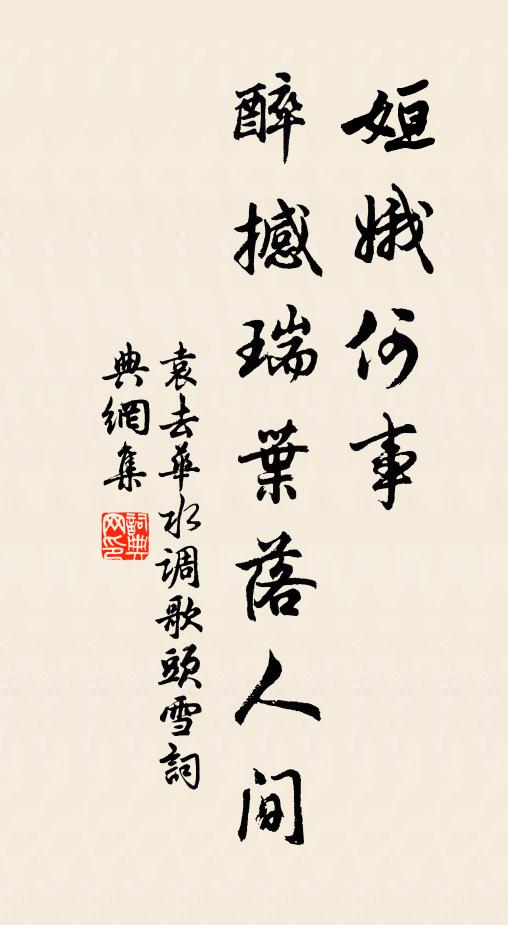 姮娥何事
醉撼瑞葉落人间
袁去華水调歌頭雪詞
典網集
詞典網印